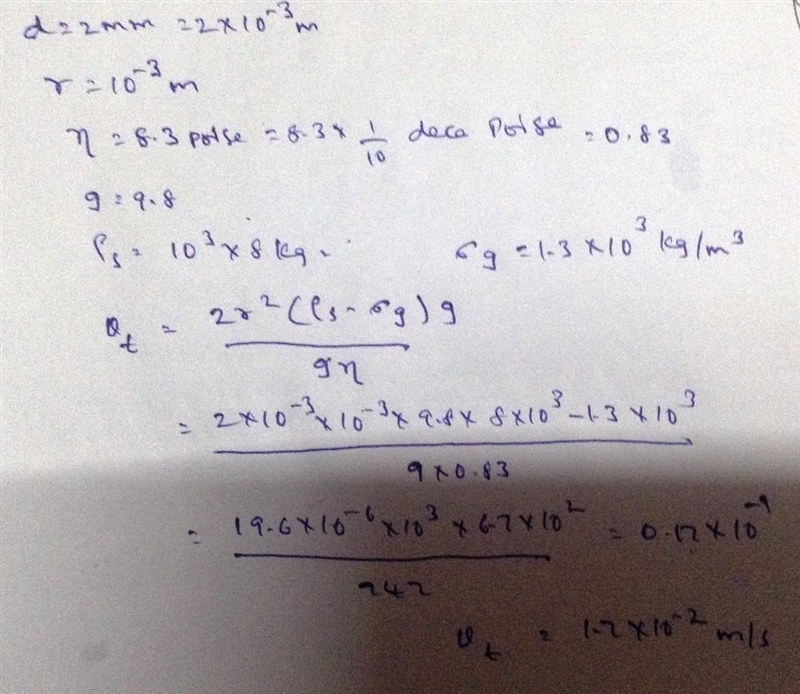 d = 2mm = 2×10⁻³ m
r = 10⁻³ m
η = 8.3 poise = 8.3 × 1/10 deca Poise = 0.83
g = 9.8
ρs = 10³ × 8 kg. σg = 1.3 × 10³ kg/m³
vt = 2r² (ρs - σg) g / 9η
= 2×10⁻³ × 10⁻³ × 9.8 × 8×10³ - 1.3 × 10³ / 9 × 0.83
= 19.6 × 10⁻⁶ × 10³ × 67 × 10² / 747 = 0.17 × 10⁻¹
vt = 1.7 × 10⁻² m/s